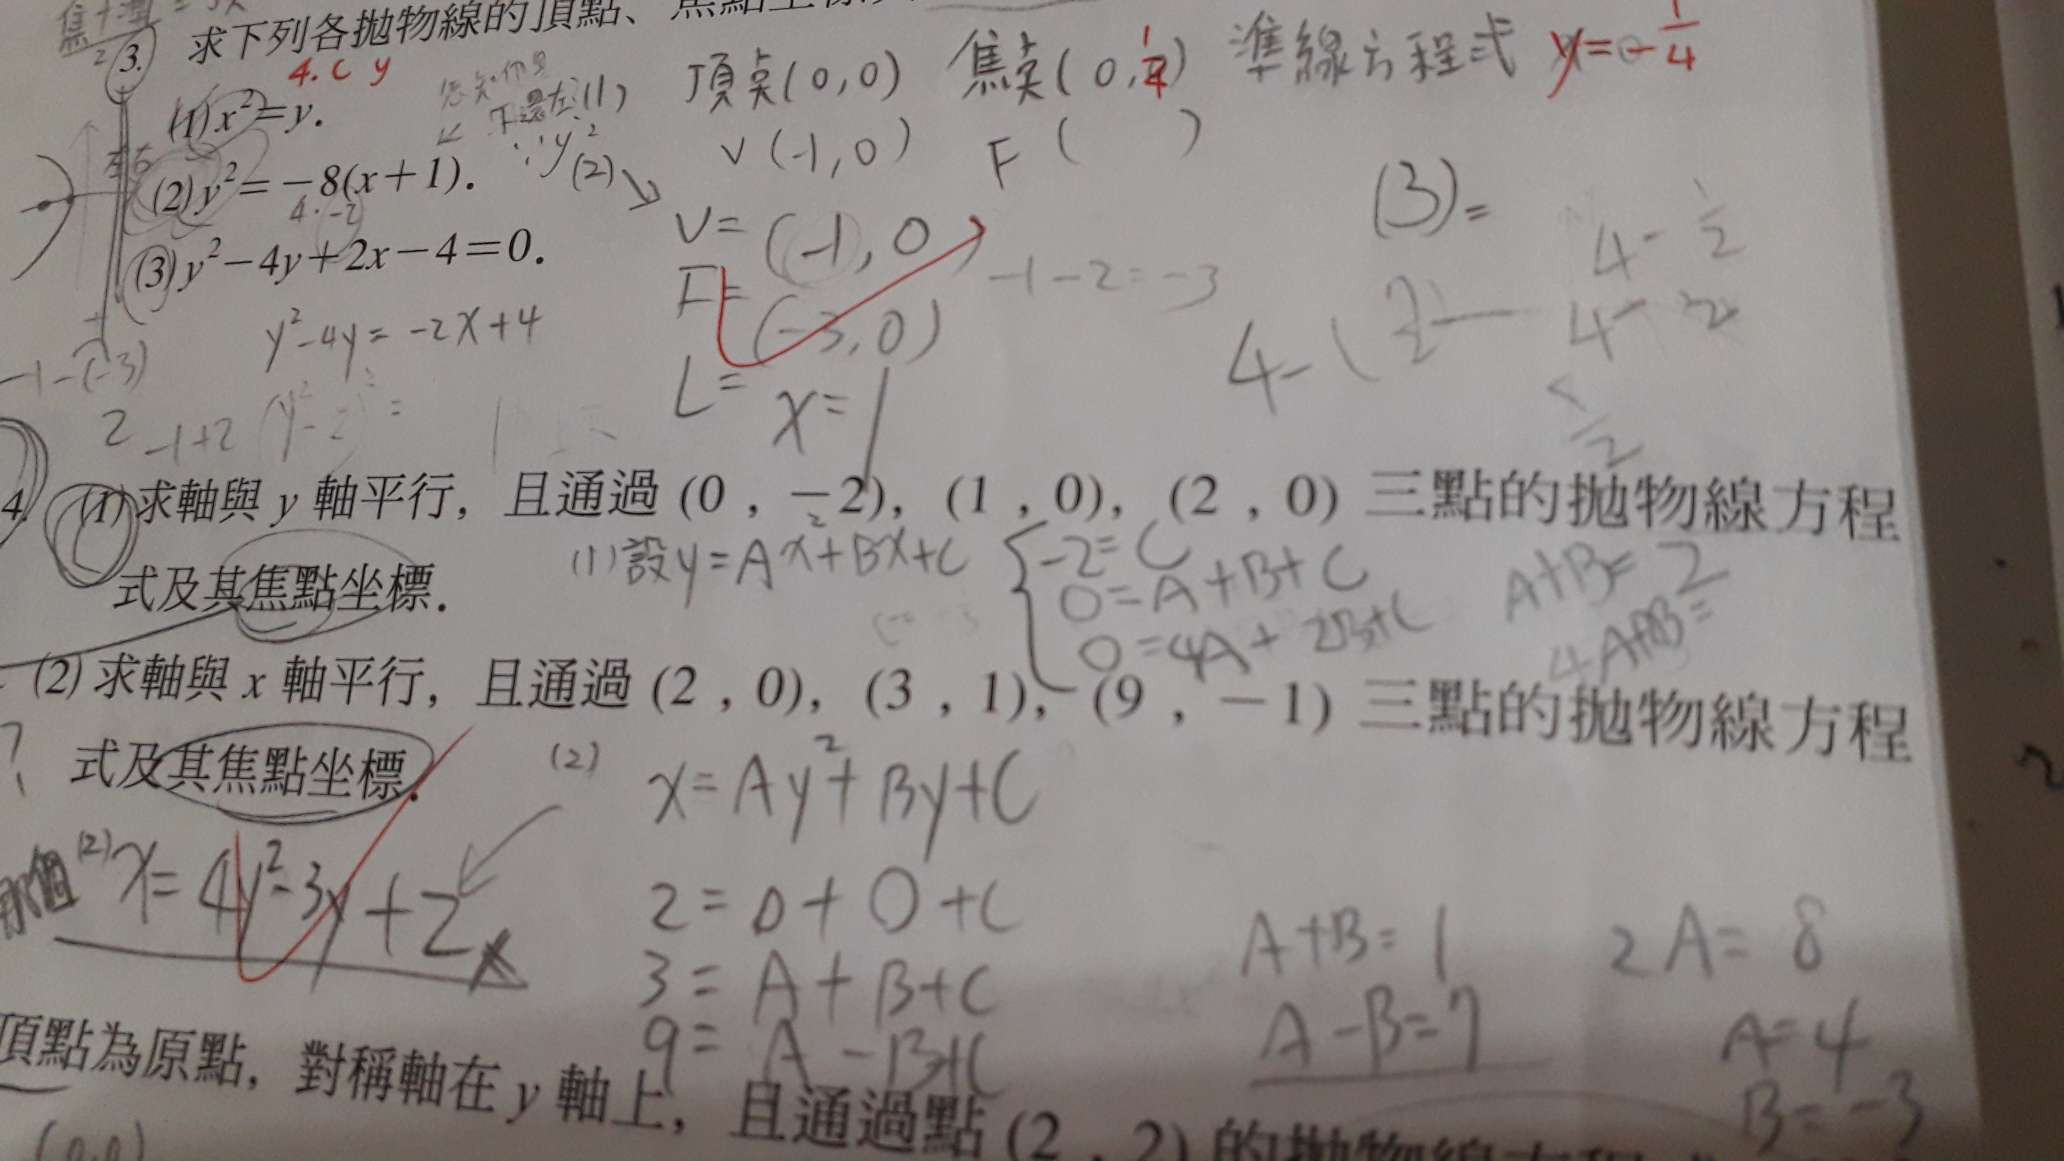 3. 求下列各拋物線的頂點、焦點坐標
4.c y
(1) x²=y.
(1) 頂點(0,0) 焦點(0,1/4) 準線方程式 y=-1/4
V(-1,0) F( )
(2) y²=-8(x+1).
4·-2
∵y²
(2)
V=(-1,0)
F=(-3,0)
-1-2=-3
L= x=1
(3)=
4-1/2
(3) y²-4y+2x-4=0.
y²-4y=-2x+4
-1-(-3)
2 -1+2
4. (1) 求軸與 y 軸平行，且通過 (0 , -2)，(1 , 0)，(2 , 0) 三點的拋物線方程
式及其焦點坐標.
(1) 設y=Ax²+Bx+C
-2=C
0=A+B+C
0=4A+2B+C
A+B=2
4A+B=
(2) 求軸與 x 軸平行，且通過 (2 , 0)，(3 , 1)，(9 , -1) 三點的拋物線方程
式及其焦點坐標.
?
(2)
x=Ay²+By+C
(2) x=4y²-3y+2
2=0+0+C
3=A+B+C
9=A-B+C
A+B=1
A-B=7
2A=8
A=4
B=-3
頂點為原點，對稱軸在 y 軸上，且通過點 (2 , 2) 的拋物線方程
(0,0)